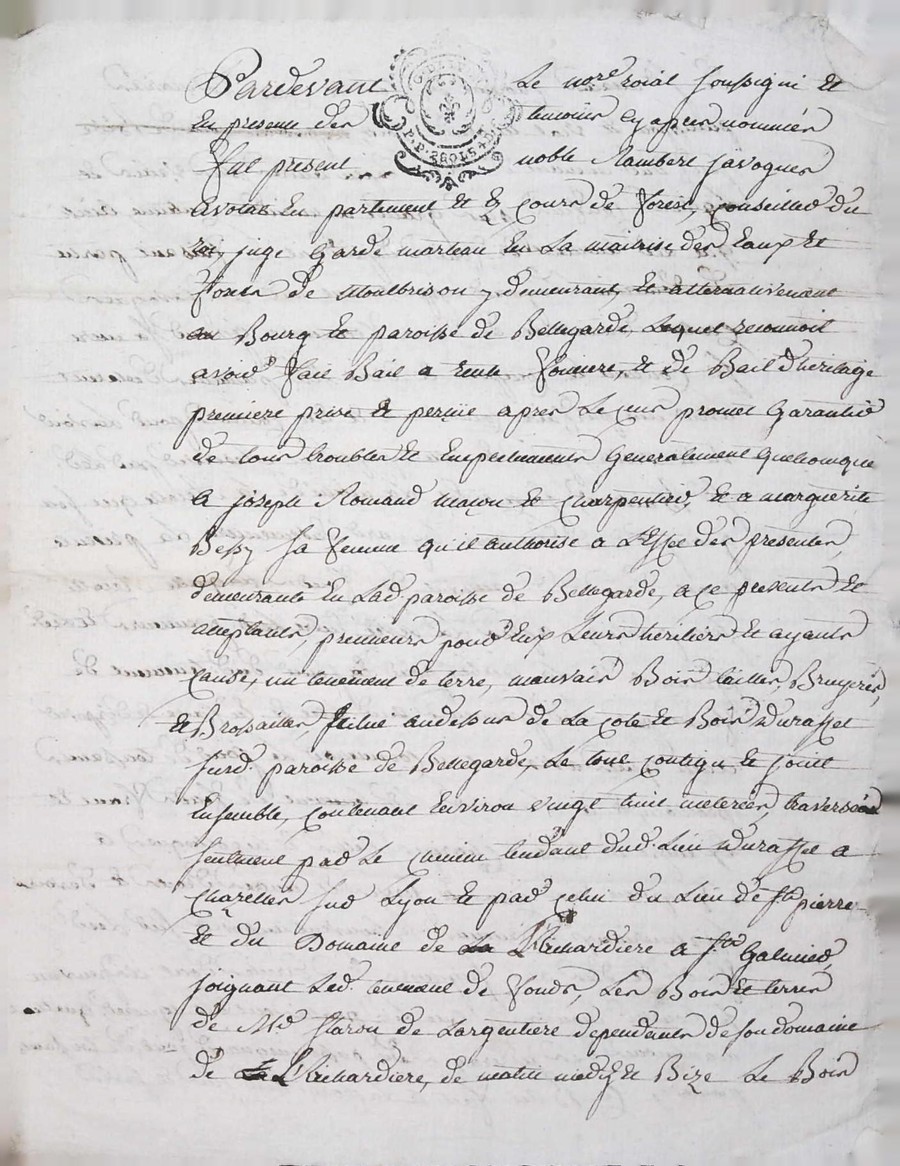 Pardevant Le nore roial soussigné et
En presence des temoins cy apres nommés
fut present noble Rambert javogues
avocat En parlement et es cours de forest, conseiller du
roy, juge Garde marteau En La maitrise des Eaux et
forets de Montbrison y demeurant, et alternativement
au Bourg et paroisse de Bellegarde, Lequel reconnoit
avoir fait Bail a rente fonciere, et de Bail d'heritage
premiere prise et perçüe apres Le cens promet Garantir
de tous troubles et Empechements Generalement quelconque
a joseph Romand maçon et charpentier, et a marguerite
Bessy sa femme qu'il authorise a L'Effet des presentes,
demeurants En Lad. paroisse de Bellegarde, a ce presents et
acceptants, preneurs pour Eux Leurs heritiers et ayants
cause, un tenement de terre, mauvais Bois taillis, Bruyeres,
et Brossailles, situé audessus de La cote et Bois Durasset
surd. paroisse de Bellegarde, Le tout contigu et joint
Ensemble, contenant Environ vingt huit meterées, traversées
seulement par Le chemin tendant dud. Lieu Durasset a
chazelles sur Lyon et par celui du Lieu de st pierre
et du Domaine de La Richardiere a st Galmier,
joignant Led. tenement de fonds, Les Bois et terres
de Mr Staron de Largentiere dependants de son domaine
de La Richardiere, de matin midy et Bize Le Bois